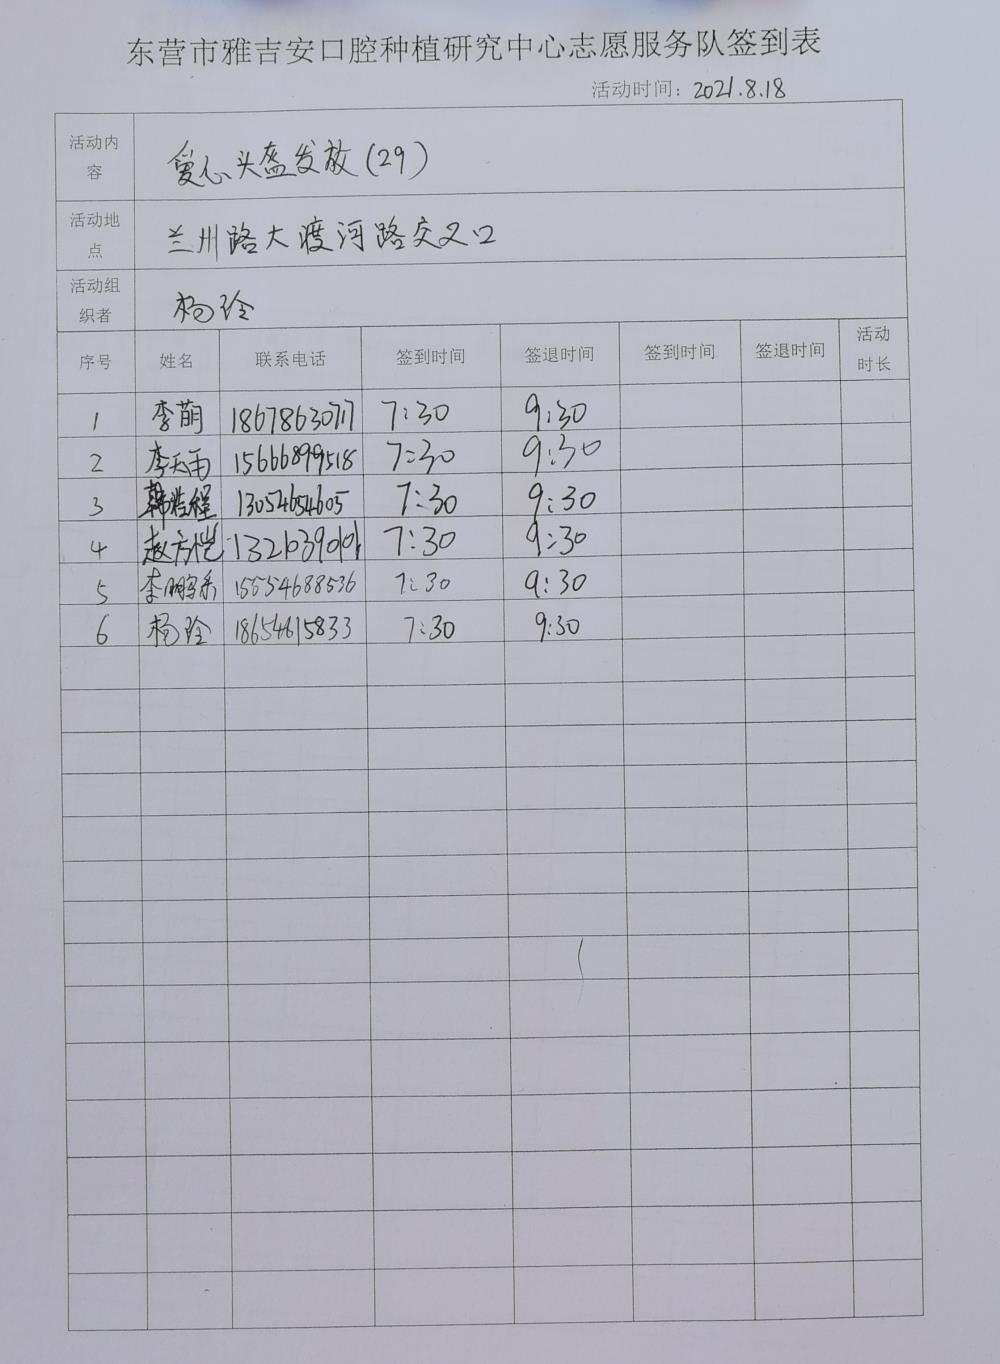 东营市雅吉安口腔种植研究中心志愿服务队签到表
活动时间：2021.8.18
活动内容 爱心头盔发放(29)
活动地点 兰州路大渡河路交叉口
活动组织者 杨玲
序号 姓名 联系电话 签到时间 签退时间 签到时间 签退时间 活动时长
1 李萌 18678630717 7:30 9:30
2 李天雨 15666899518 7:30 9:30
3 韩浩程 13054654605 7:30 9:30
4 赵方恺 7:30 9:30
5 李鹏 15554688536 7:30 9:30
6 杨玲 18654615833 7:30 9:30